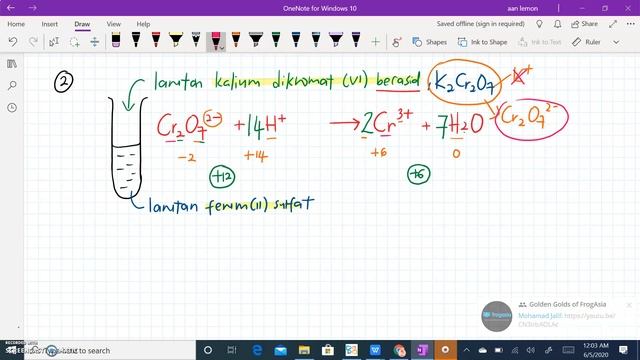 OneNote for Windows 10
aan lemon
File Home Insert Draw View Help Class Notebook
Saved offline (Sign in required) Share
Shapes Ink to Shape Ink to Text Ruler
② larutan kalium dikromat (VI) berasid, K₂Cr₂O₇ → K⁺
Cr₂O₇²⁻ + 14H⁺ → 2Cr³⁺ + 7H₂O Cr₂O₇²⁻
-2 +14 +6 0
+12 +6
larutan ferum(II) sulfat
Golden Golds of FrogAsia
Mohamad Jalil: https://youtu.be/
frogasia
RECORDED WITH
to search
12:03 AM
6/5/2020